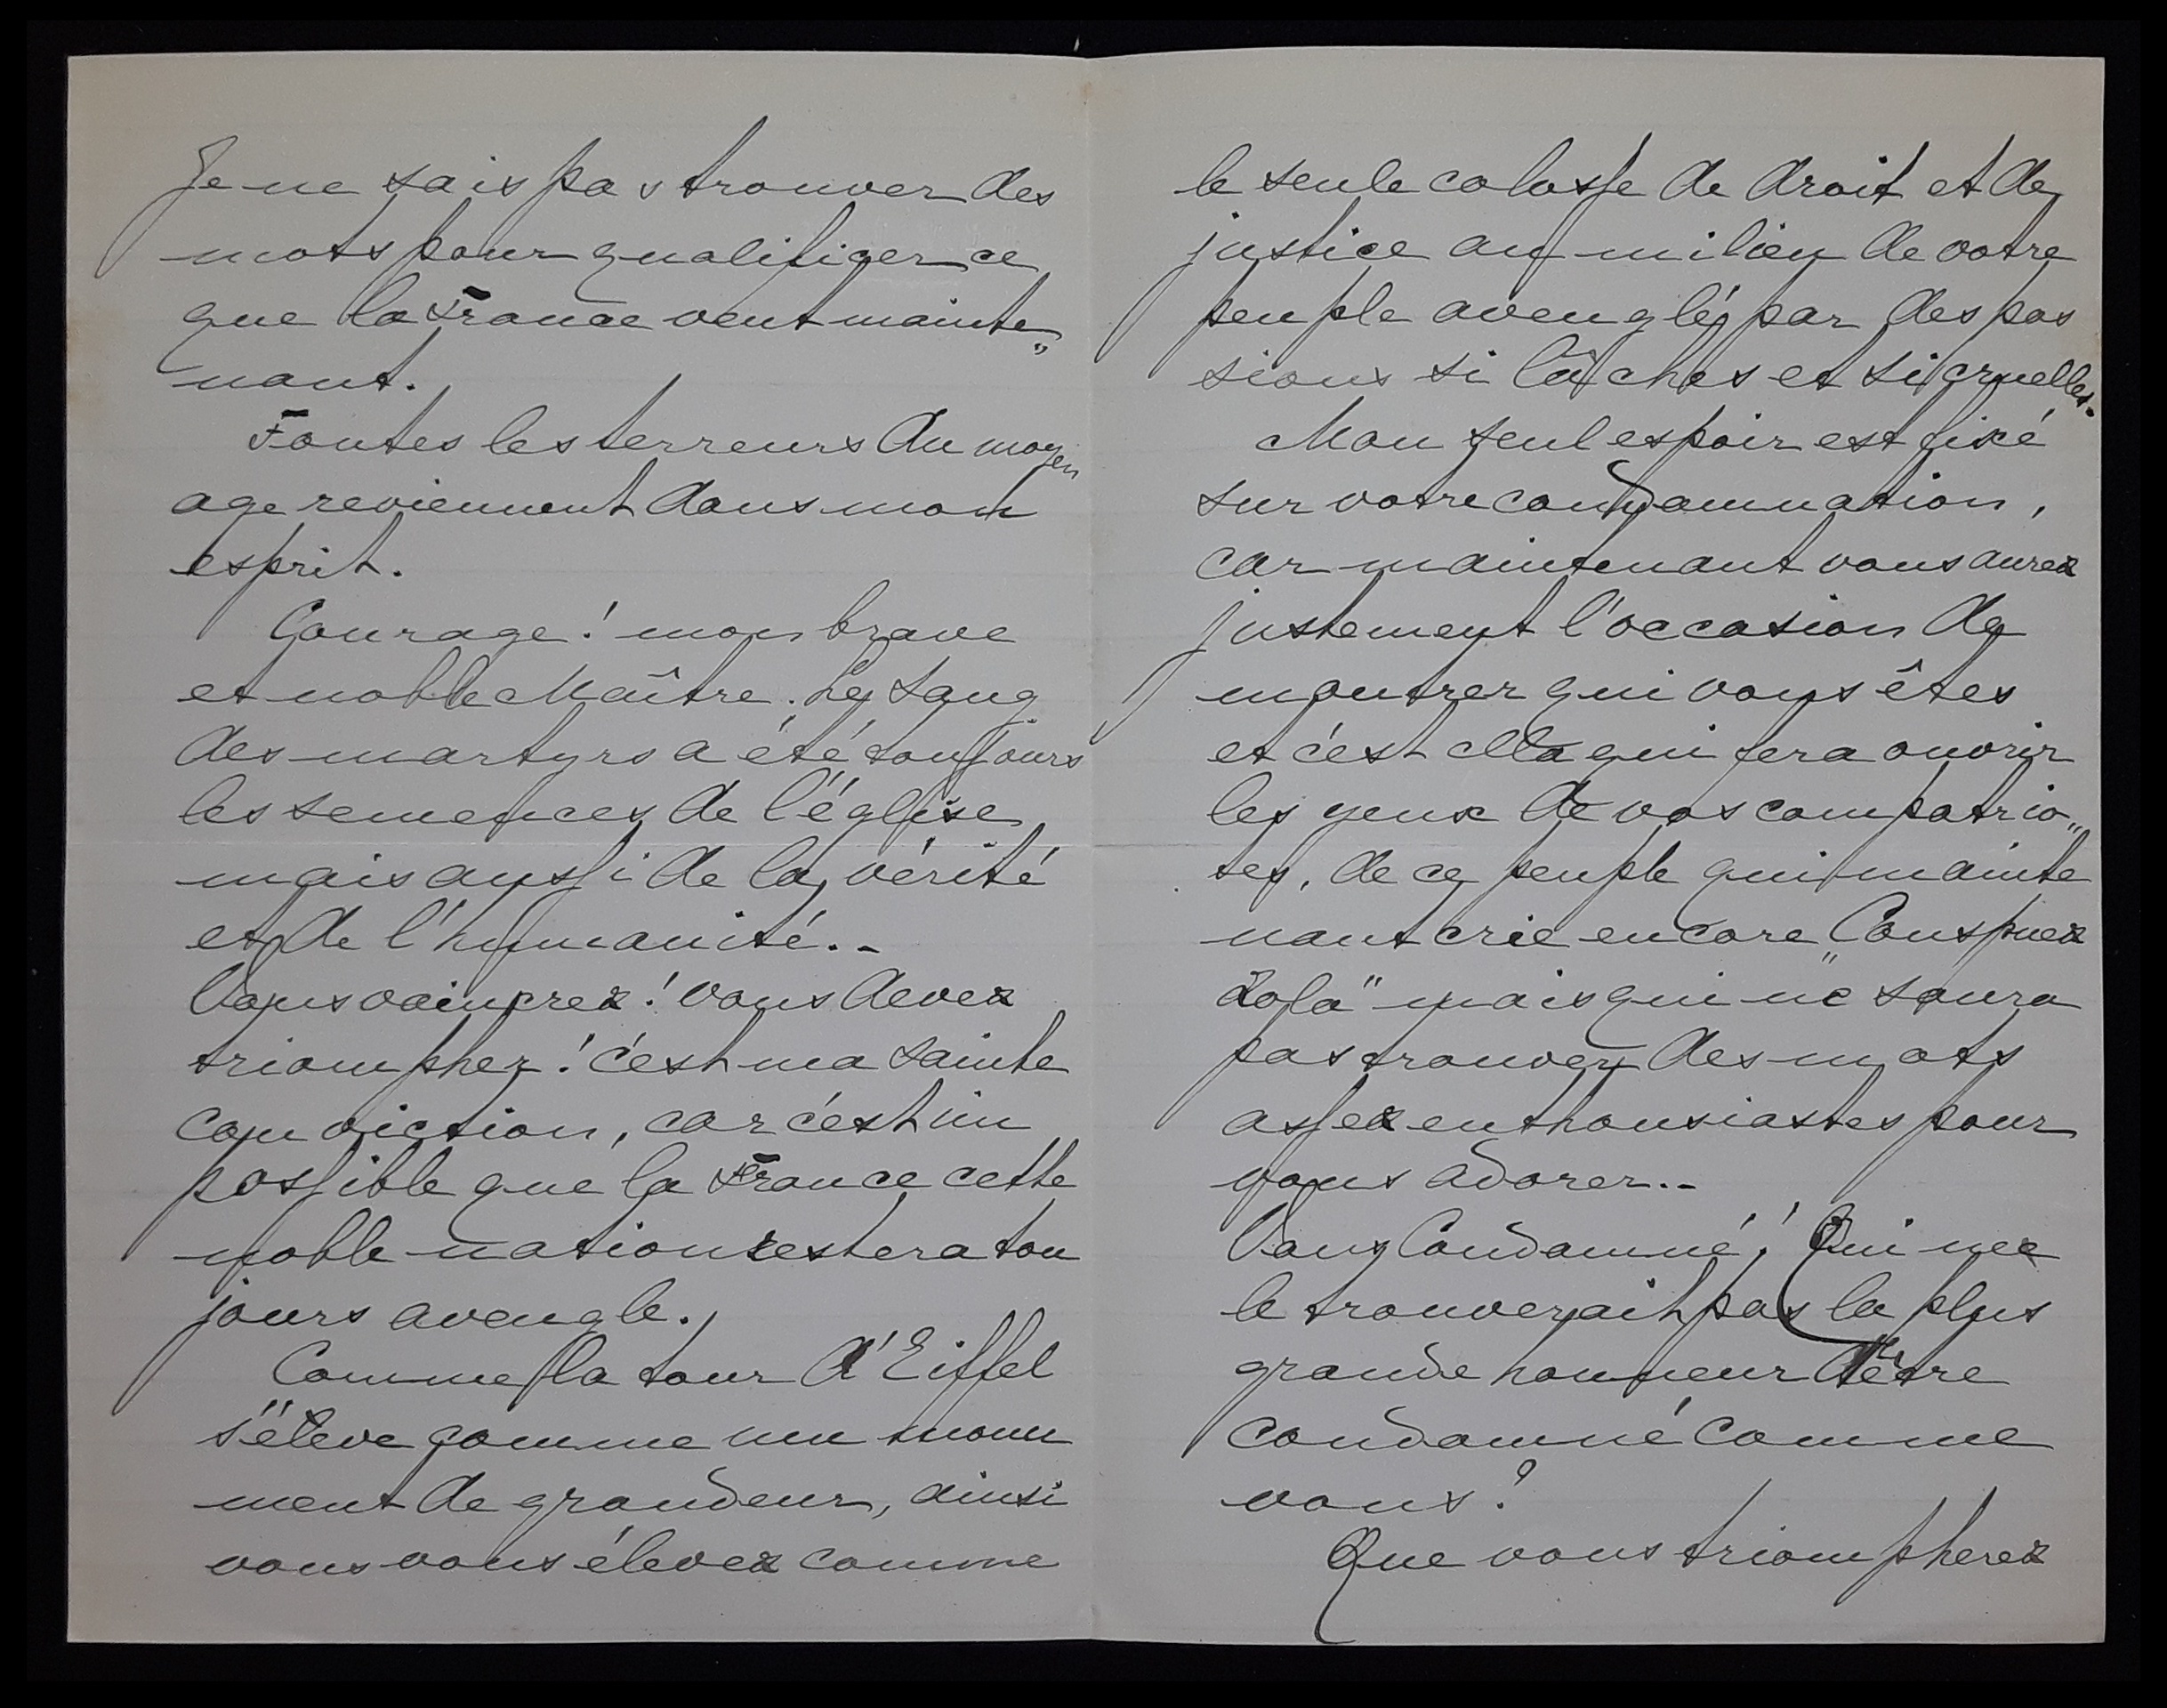 Je ne sais pas trouver des
mots pour qualifiger ce
que la France veut mainte„
nant.
Toutes les terreurs du moyen
age reviennent dans mon
esprit.
Courage! mon brave
et noble Maître. Le sang
des martyrs a été toujours
les semences de l'église
mais aussi de la vérité
et de l'humanité.-
Vous vaincrez! vous devez
triompher! c'est ma sainte
conviction, car c'est im
possible que la France cette
noble nation restera tou
jours aveugle.
Comme la tour d'Eiffel
s'élève comme un monu
ment de grandeur, ainsi
vous vous élevez comme
le seule colosse de droit et de
justice au milieu de votre
peuple aveuglé par des pas
sions si lâches et si cruelles.
Mon seul espoir est fixé
sur votre condamnation,
car maintenant vous aurez
justement l'occasion de
montrer qui vous êtes
et c'est cela qui fera ouvrir
les yeux de vos compatrio„
tes, de ce peuple qui mainte
nant crie encore „Conspuez
Zola" mais qui ne saura
pas trouver des mots
assez enthousiastes pour
vous adorer..-
Vous Condamné! Qui ne
le trouverait pas la plus
grande honneur d'être
condamné comme
vous?
Que vous triompherez